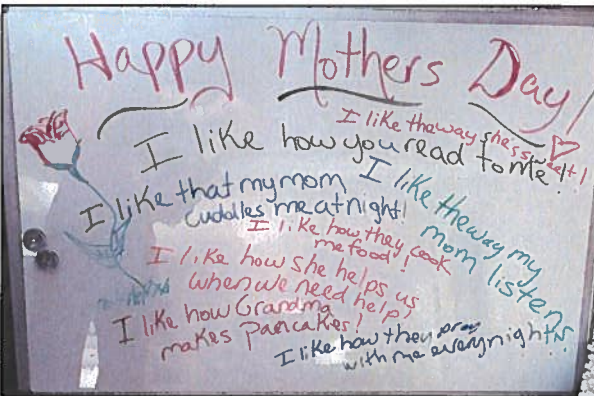 Happy Mothers Day!
I like the way shes sweet!
I like how you read to me!
I like that my mom
cuddles me at night!
I like the way my
mom listens
I like how they cook
me food!
I like how she helps us
when we need help!
I like how Grandma
makes pancakes!
I like how they pray
with me every night!